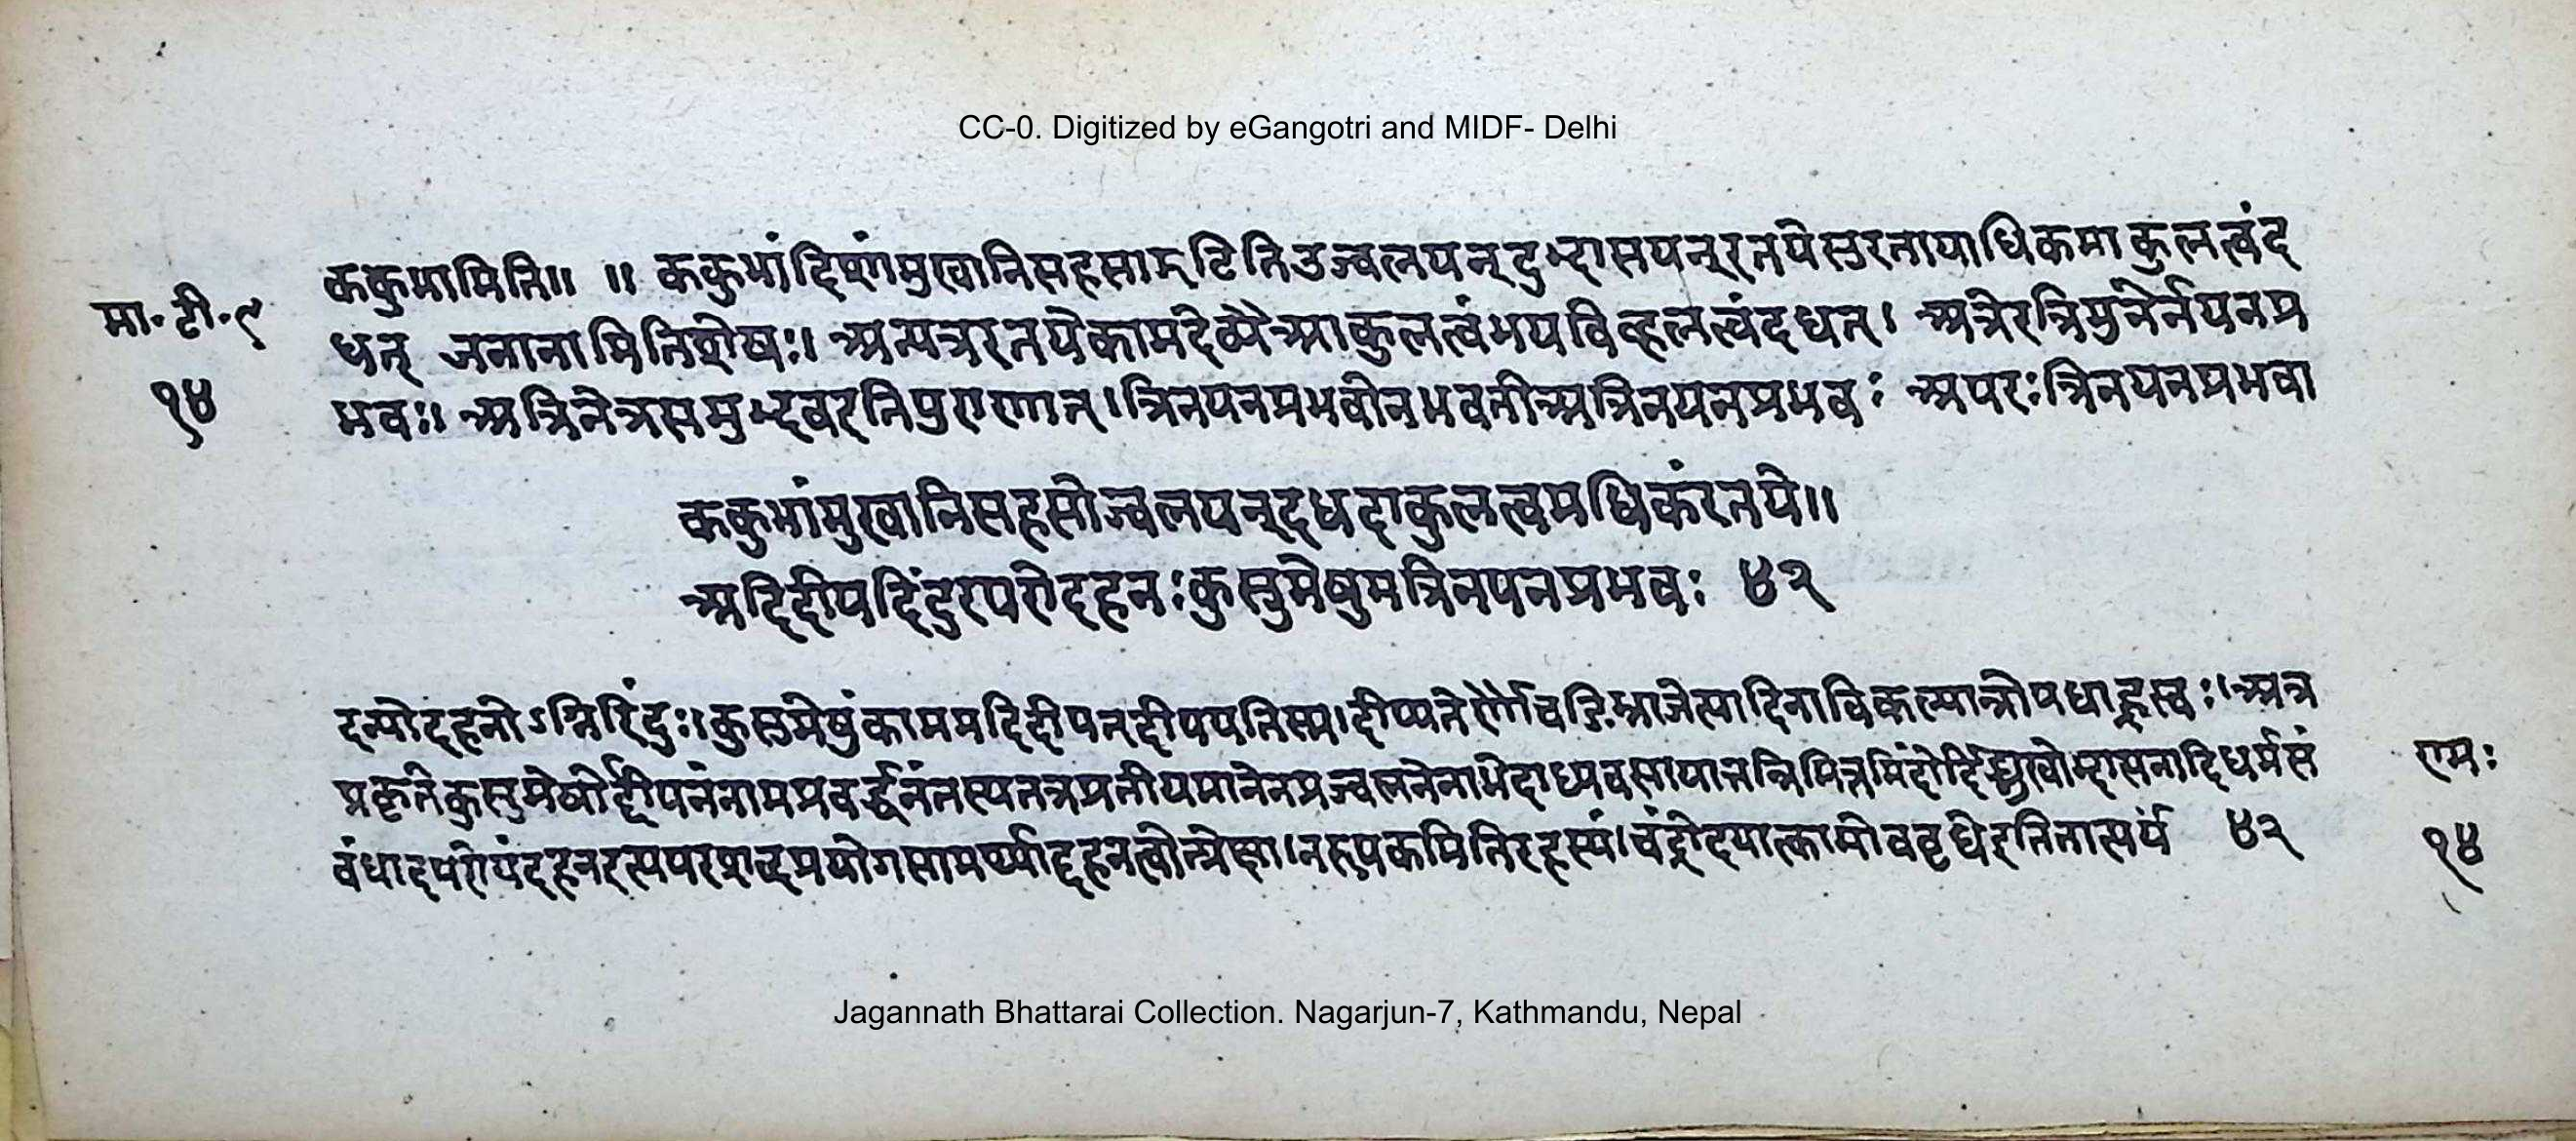 CC-0. Digitized by eGangotri and MIDF- Delhi
ककुभामिति॥ ॥ ककुभांदिशांमुखानिसहसाझटितिउज्वलयन्दुद्भासयन्रतयेसुरतायाधिकमाकुलत्वंद
मा॰टी॰९
धत् जनानामितिशेषः॥ अन्यत्ररतयेकामदेव्यैआकुलत्वंभयविव्हलत्वंदधत्। अत्रेरत्रिमुनेर्नयनप्र
१४
भवः॥ अत्रिनेत्रसमुद्भवइतिपुराणात्।त्रिनयनप्रभवोनभवतीअत्रिनयनप्रभवः अपरःत्रिनयनप्रभवा
ककुभांमुखानिसहसोज्वलयन्दधदाकुलत्वमधिकंरतये॥
अदिदीपदिंदुरपरोदहनःकुसुमेषुमत्रिनयनप्रभवः ४२
दन्योदहनोऽग्निरिंदुः॥कुसुमेषुंकाममदिदीपत्दीपयतिस्म।दीप्यतेर्णौचङिभ्राजेत्यादिनाविकल्पान्नोपधाह्रस्वः।अत्र
प्रकृतेकुसुमेषोर्द्दीपनंनामप्रवर्द्धनंतस्यतत्रप्रतीयमानेनप्रज्वलनेनाभेदाध्यवसायात्तन्निमित्तमिंदोर्दिङ्मुखोद्भासनादिधर्मसं
राम:
वंधादपरोयंदहनइत्यपरशब्दप्रयोगसामर्थ्याद्दहनत्वोत्प्रेक्षा।नरूपकमितिरहस्यं।चंद्रोदयात्कामोववृधेइतितात्पर्यं ४२
१४
Jagannath Bhattarai Collection. Nagarjun-7, Kathmandu, Nepal